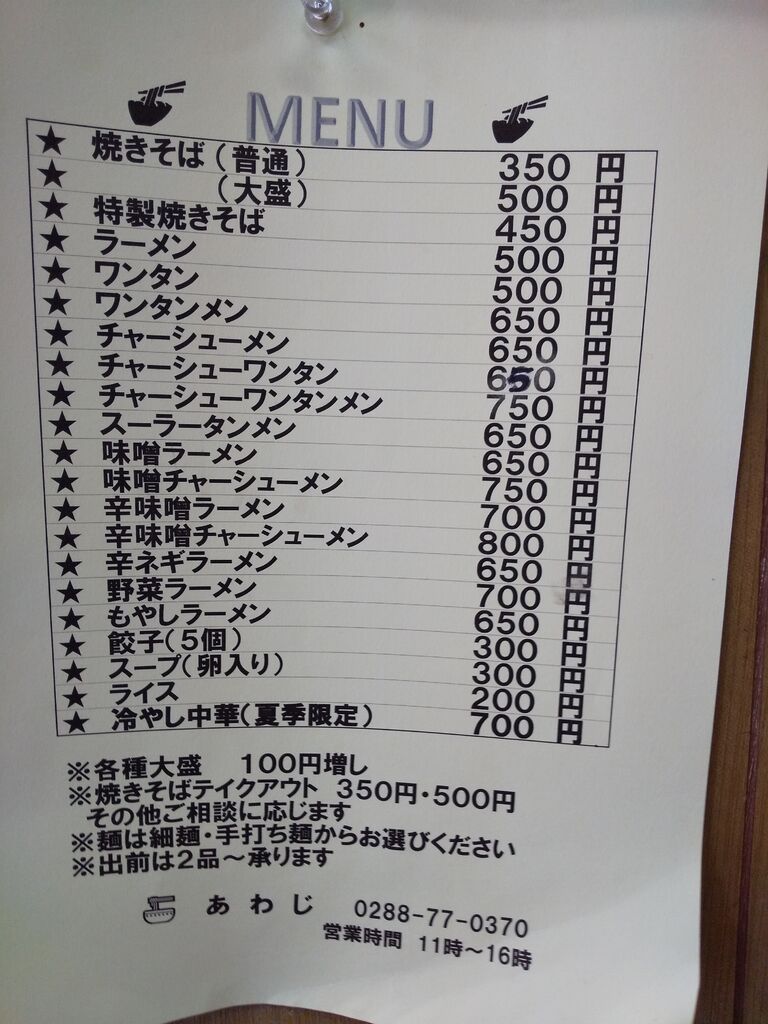 MENU
★ 焼きそば（普通） 350 円
★ （大盛） 500 円
★ 特製焼きそば 450 円
★ ラーメン 500 円
★ ワンタン 500 円
★ ワンタンメン 650 円
★ チャーシューメン 650 円
★ チャーシューワンタン 650 円
★ チャーシューワンタンメン 750 円
★ スーラータンメン 650 円
★ 味噌ラーメン 650 円
★ 味噌チャーシューメン 750 円
★ 辛味噌ラーメン 700 円
★ 辛味噌チャーシューメン 800 円
★ 辛ネギラーメン 650 円
★ 野菜ラーメン 700 円
★ もやしラーメン 650 円
★ 餃子（５個） 300 円
★ スープ（卵入り） 300 円
★ ライス 200 円
★ 冷やし中華（夏季限定） 700 円
※各種大盛 100円増し
※焼きそばテイクアウト 350円・500円
その他ご相談に応じます
※麺は細麺・手打ち麺からお選びください
※出前は２品～承ります
あわじ 0288-77-0370
営業時間 11時～16時